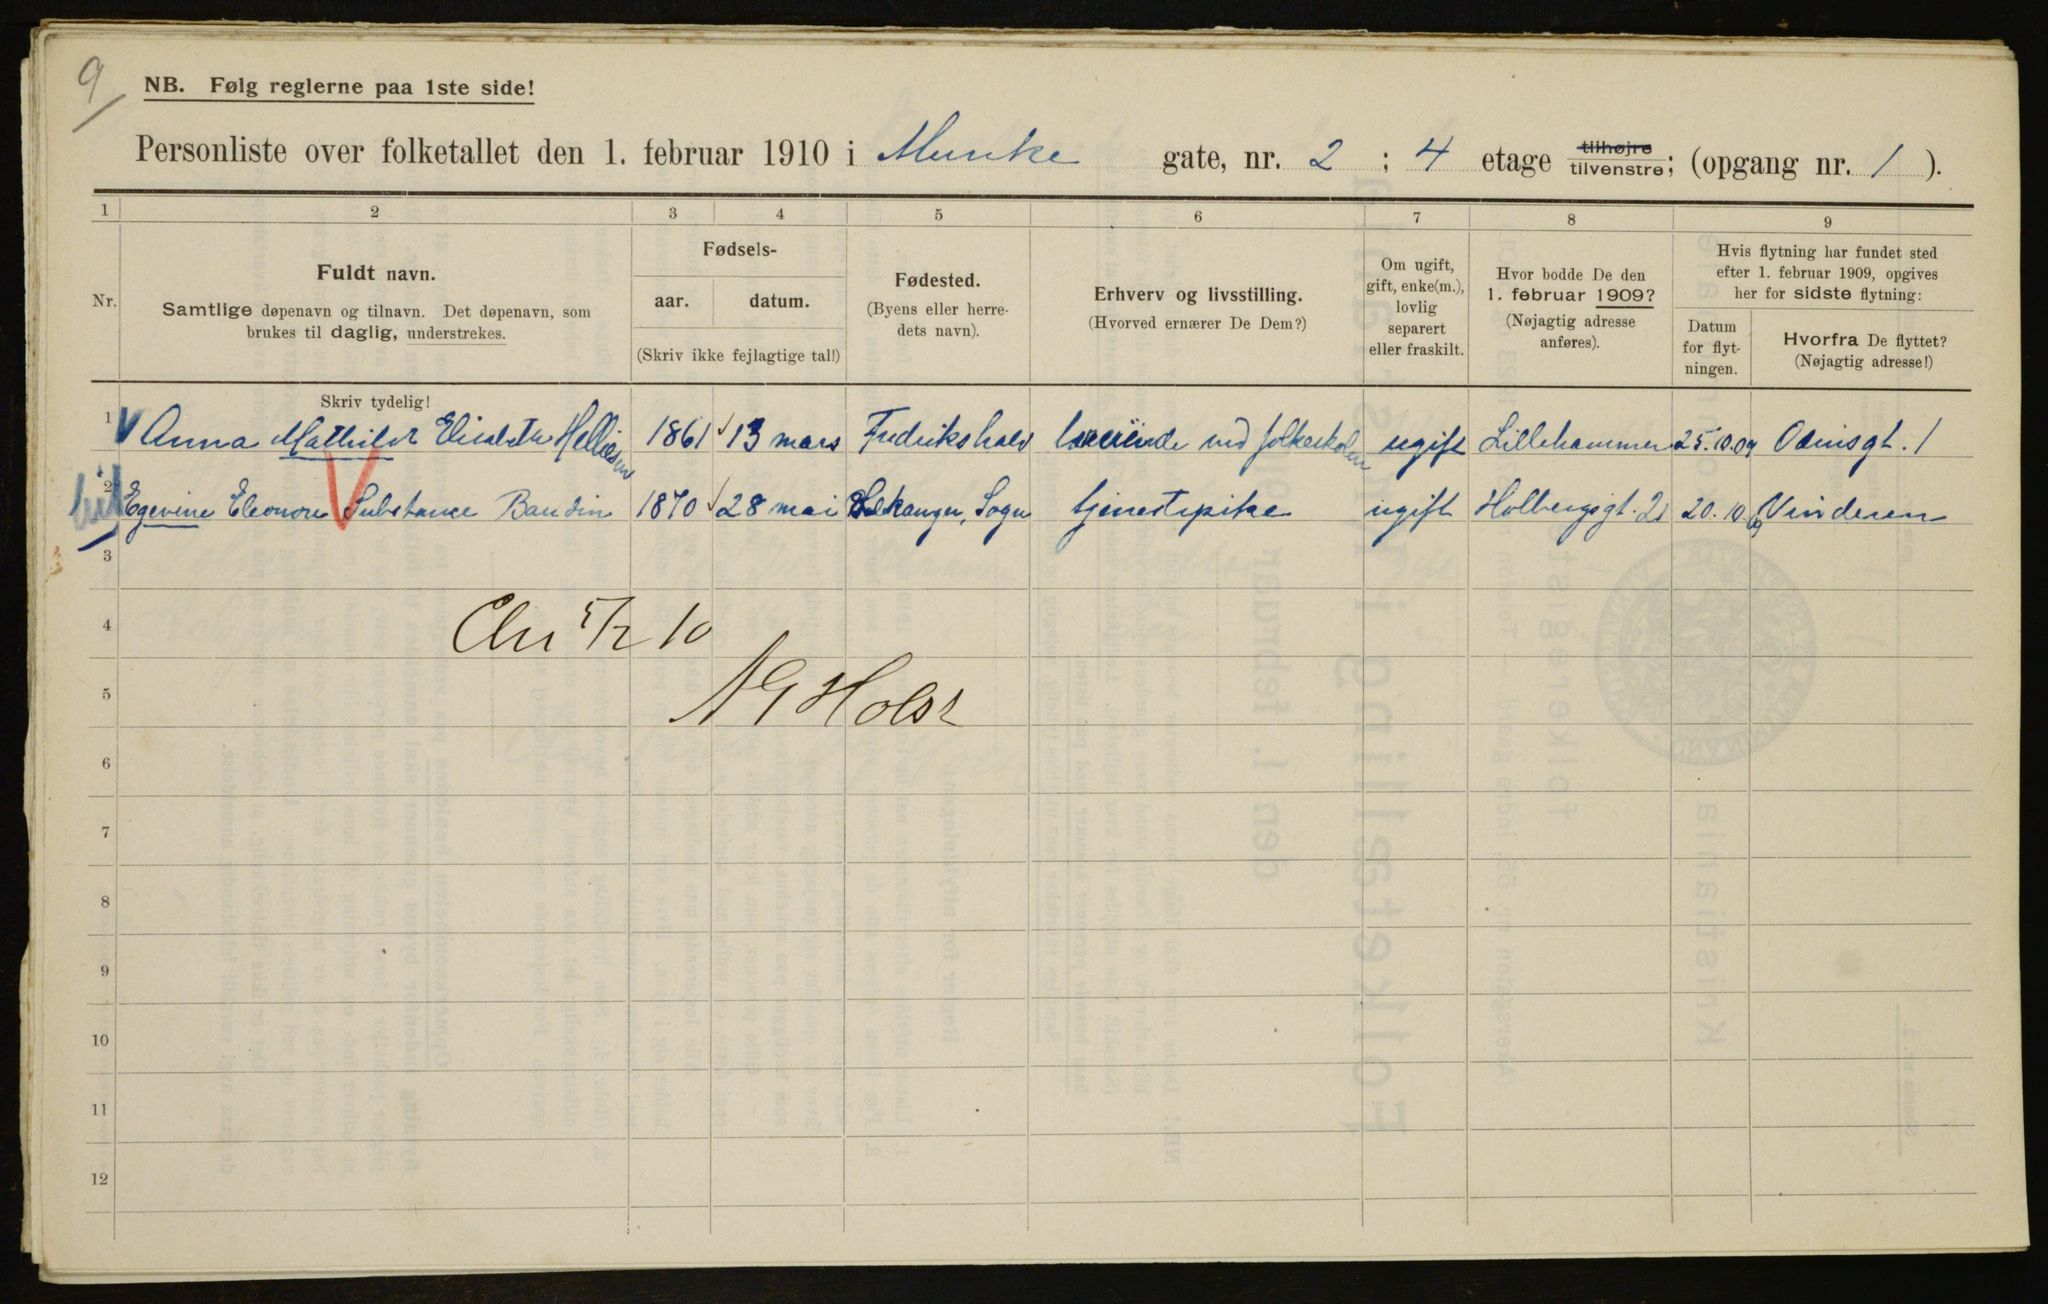 9/
NB. Følg reglerne paa 1ste side!
Personliste over folketallet den 1. februar 1910 i Munke gate, nr. 2 ; 4 etage tilhøjre tilvenstre; (opgang nr. 1 ).
1 2 3 4 5 6 7 8 9
Nr.
Fuldt navn.
Samtlige døpenavn og tilnavn. Det døpenavn, som
brukes til daglig, understrekes.
Fødsels-
aar. datum.
(Skriv ikke fejlagtige tal!)
Fødested.
(Byens eller herre-
dets navn).
Erhverv og livsstilling.
(Hvorved ernærer De Dem?)
Om ugift,
gift, enke(m.),
lovlig
separert
eller fraskilt.
Hvor bodde De den
1. februar 1909?
(Nøjagtig adresse
anføres).
Hvis flytning har fundet sted
efter 1. februar 1909, opgives
her for sidste flytning:
Datum
for flyt-
ningen.
Hvorfra De flyttet?
(Nøjagtig adresse!)
Skriv tydelig!
1 Anna Mathilde Elisabeth Helliesen 1861 13 mars Fredrikshald lærerinde ved folkeskolen ugift Lillehammer 25.10.09 Odinsgt. 1
2 Egevine Eleonore Substance Baudin 1870 28 mai Lekanger, Sogn tjenestepike ugift Holbergsgt. 21 20.10.09 Vinderen
3
4
Chr 5/2 10
5
A G Holst
6
7
8
9
10
11
12